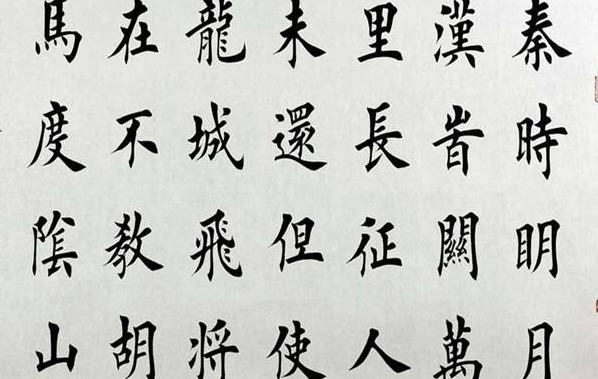 秦時眀月
漢旹關萬
里長征人
未還但使
龍城飛将
在不教胡
馬度隂山